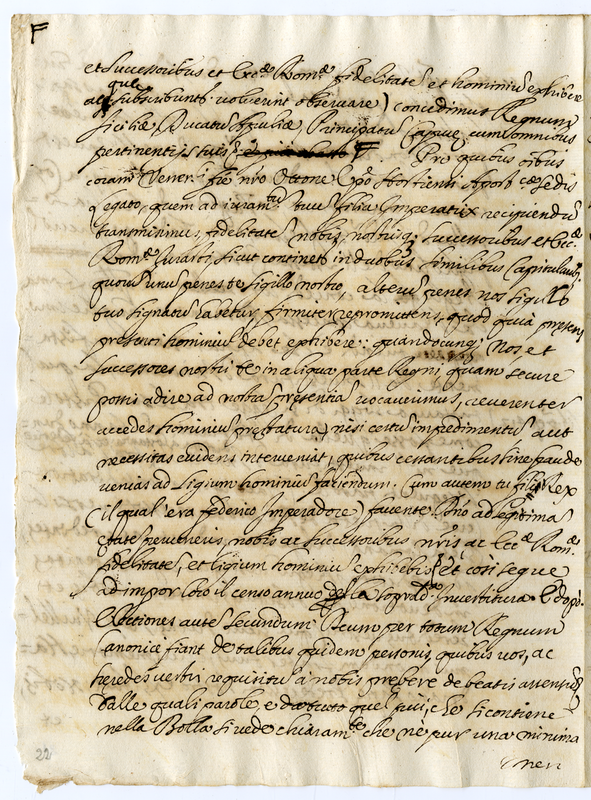 F
et successoribus et Ecc.æ Rom.æ fidelitatē et hominiū exhibere
quę
subscribunt voluerint observare) concedimus Regnum
Siciliæ Ducatū Apuliæ Principatū Capuæ cum omnibus
pertinentijs suis F. Pro quibus oībus
coram Vener. fře nr̄o Ottone Ostienti Apost.cæ Sedis
legato, quem ad iuram.tū tuū filia Imperatrix recipiendū
transmisimus, fidelitatē nobis, nostrisq; successoribus et Ecc.æ
Rom.æ Iurasti, sicut continetr̄ in duobus similibus Capitularib;
quorū unū penes te sigillo nostro, alterū penes nos sigillo
tuo signatū habetur firmiter repromittens, quod quia presens
presenti hominiū debet exhibere; quandocunq; Nos et
successores nostri te in aliqua parte Regni, quam secure
possis adire ad nostrā pręsentia vocaverimus, reverenter
accedes hominiū pręstatura, nisi certū impedimentū, aut
necessitas evidens interveniat, quibus cessantibus sine fraude
venias ad ligium hominiū faciendum. Cum autem tu fili Rex
(il qual' era federico Imperadore) favente Dño ad legitimā
ętatē perveneris, nobis ac successoribus nr̄is ac Ecc.æ Rom.æ
fidelitatē, et ligium hominiū exhibebis et cosi segue
ad impor loro il censo annuo della sopradᵃ Investitura. E dopò.
Electiones autē secundum Deum per totum Regnum
Canonicè fiant de talibus quidem personis, quibus vos, ac
hęredes vestri requisitū à nobis prębere debeatis assensū
Dalle quali parole, e da tutto quel più, che si contiene
nella Bolla si vede chiaram.te che nè pur una minima
men
22